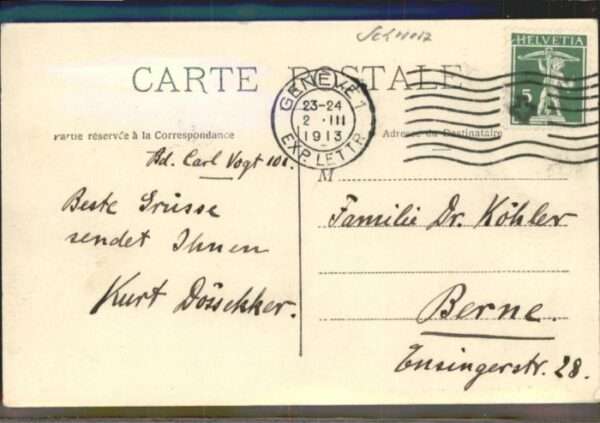 Schweiz
HELVETIA
5
CARTE POSTALE
GENÈVE 1
23-24
2 III
1913
EXP. LETTR.
Partie réservée à la Correspondance
Adresse du Destinataire
Bd. Carl Vogt 101.
M
Beste Grüsse
sendet Ihnen
Kurt Dössekker.
Familie Dr. Köhler
Berne.
Ensingerstr. 28.